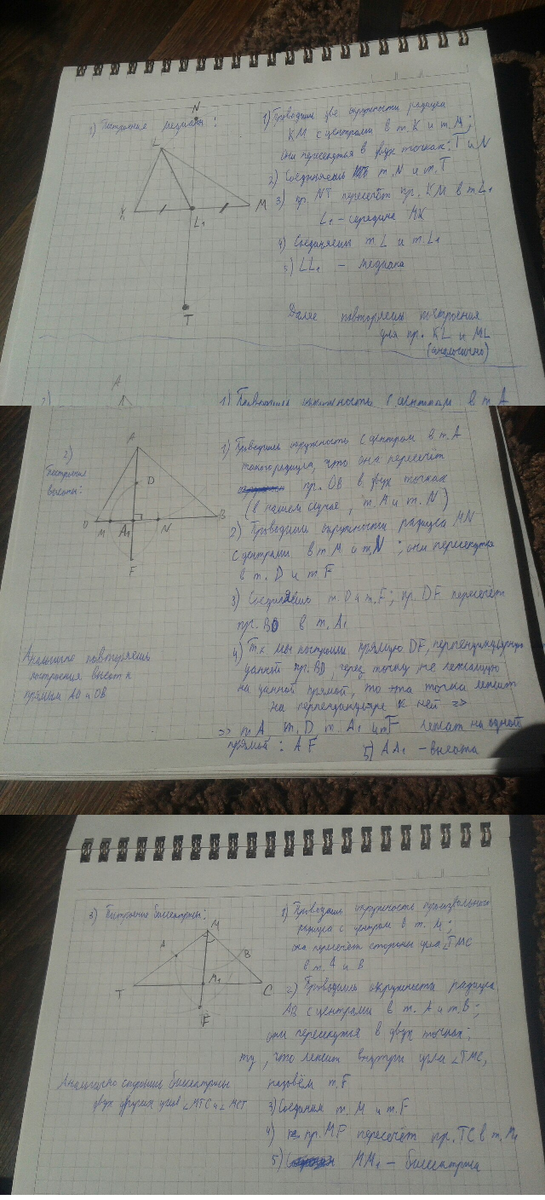 1) Построение медианы:
N
L
K
M
L₁
T
1) Проводим две окружности радиуса
KM с центрами в т. K и т. M;
они пересекутся в двух точках: T и N
2) Соединяем т. N и т. T
3) пр. NT пересечёт пр. KM в т. L₁
L₁ - середина MK
4) Соединяем т. L и т. L₁
5) LL₁ - медиана
Далее повторяем построения
для пр. KL и ML
(аналогично)
A
1) Проводим окружность с центром в т. A
2)
Построение
высоты:
A
D
O
M
A₁
N
B
F
1) Проводим окружность с центром в т. A
такого радиуса, что она пересечёт
пр. OB в двух точках
(в нашем случае, т. M и т. N)
2) Проводим окружности радиуса MN
с центрами в т. M и т. N; они пересекутся
в т. D и т. F
3) Соединяем т. D и т. F; пр. DF пересечёт
пр. BO в т. A₁
4) Т.к. мы построили прямую DF, перпендикулярную
данной пр. BO, через точку не лежащую
на данной прямой, то эта точка лежит
на перпендикуляре к ней =>
=> т. A т. D т. A₁ и т. F лежат на одной
прямой: AF
5) AA₁ - высота
Аналогично повторяем
построения высот к
прямым AO и OB
3) Построение биссектрисы:
M
A
B
T
M₁
C
F
1) Проводим окружность произвольного
радиуса с центром в т. M;
она пересечёт стороны угла ∠TMC
в т. A и B
2) Проводим окружности радиуса
AB с центрами в т. A и т. B;
они пересекутся в двух точках:
ту, что лежит внутри угла ∠TMC,
назовём т. F
3) Соединим т. M и т. F
4) пр. MF пересечёт пр. TC в т. M₁
5) MM₁ - биссектриса
Аналогично строим биссектрисы
двух других углов ∠MTC и ∠MCT